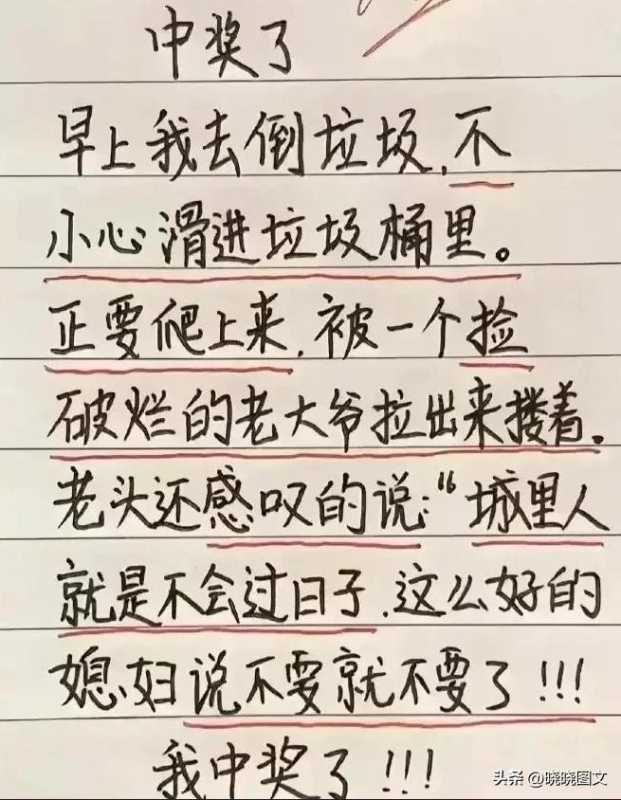 中奖了
早上我去倒垃圾,不
小心滑进垃圾桶里。
正要爬上来,被一个捡
破烂的老大爷拉出来搂着。
老头还感叹的说:“城里人
就是不会过日子,这么好的
媳妇说不要就不要了!!!
我中奖了!!!
头条 @晓晓图文